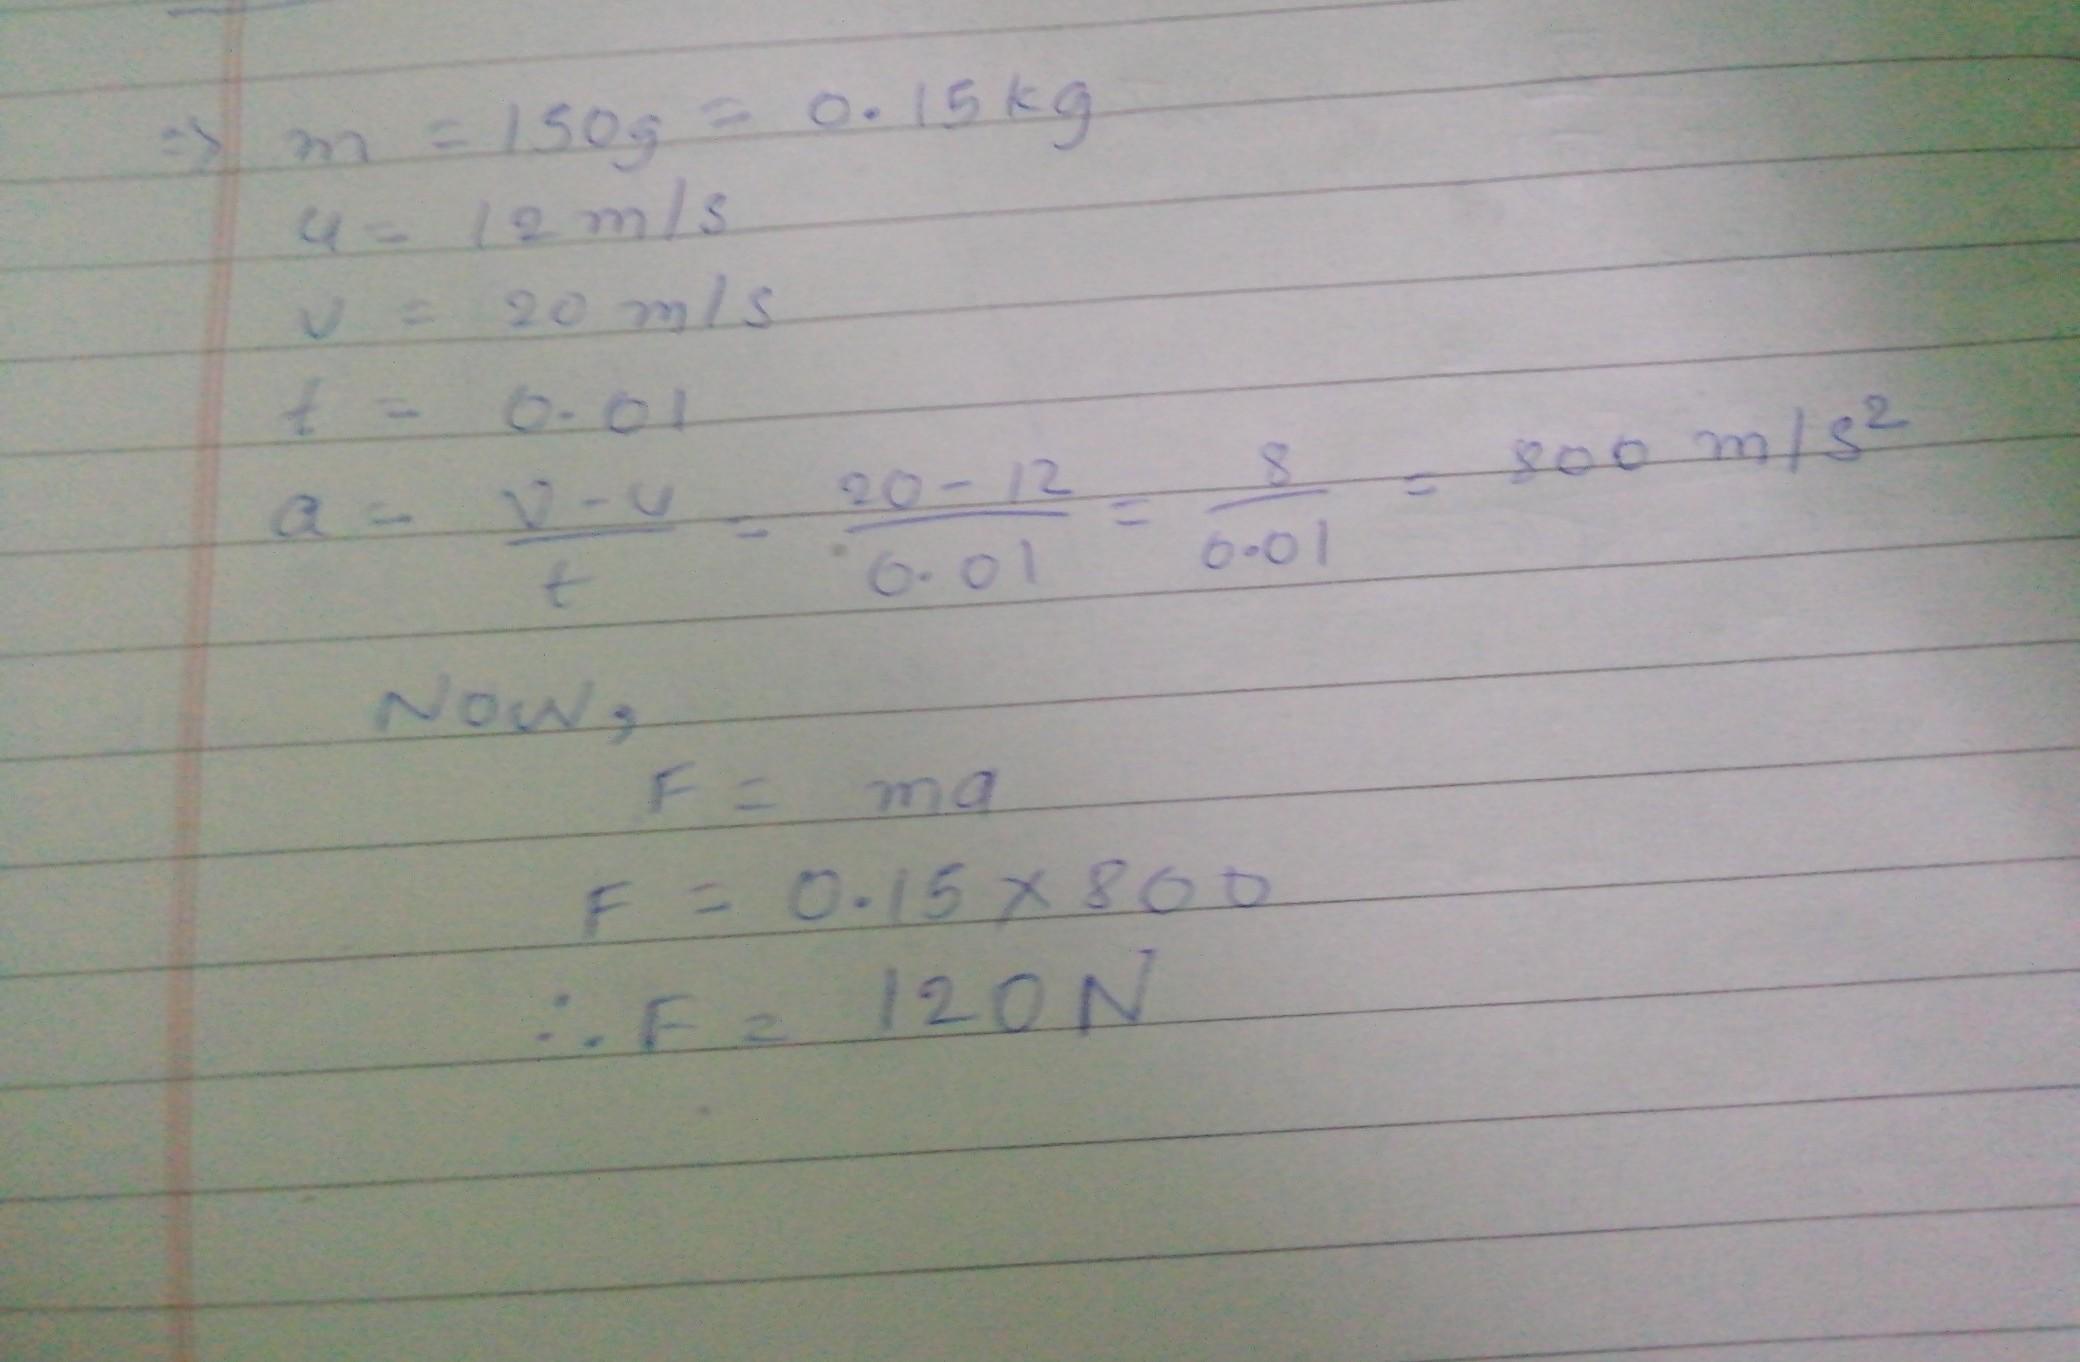 ⇒ m = 150g = 0.15kg
u = 12 m/s
v = 20 m/s
t = 0.01
a = v-u/t = 20-12/0.01 = 8/0.01 = 800 m/s²
Now,
F = ma
F = 0.15 x 800
∴ F = 120N